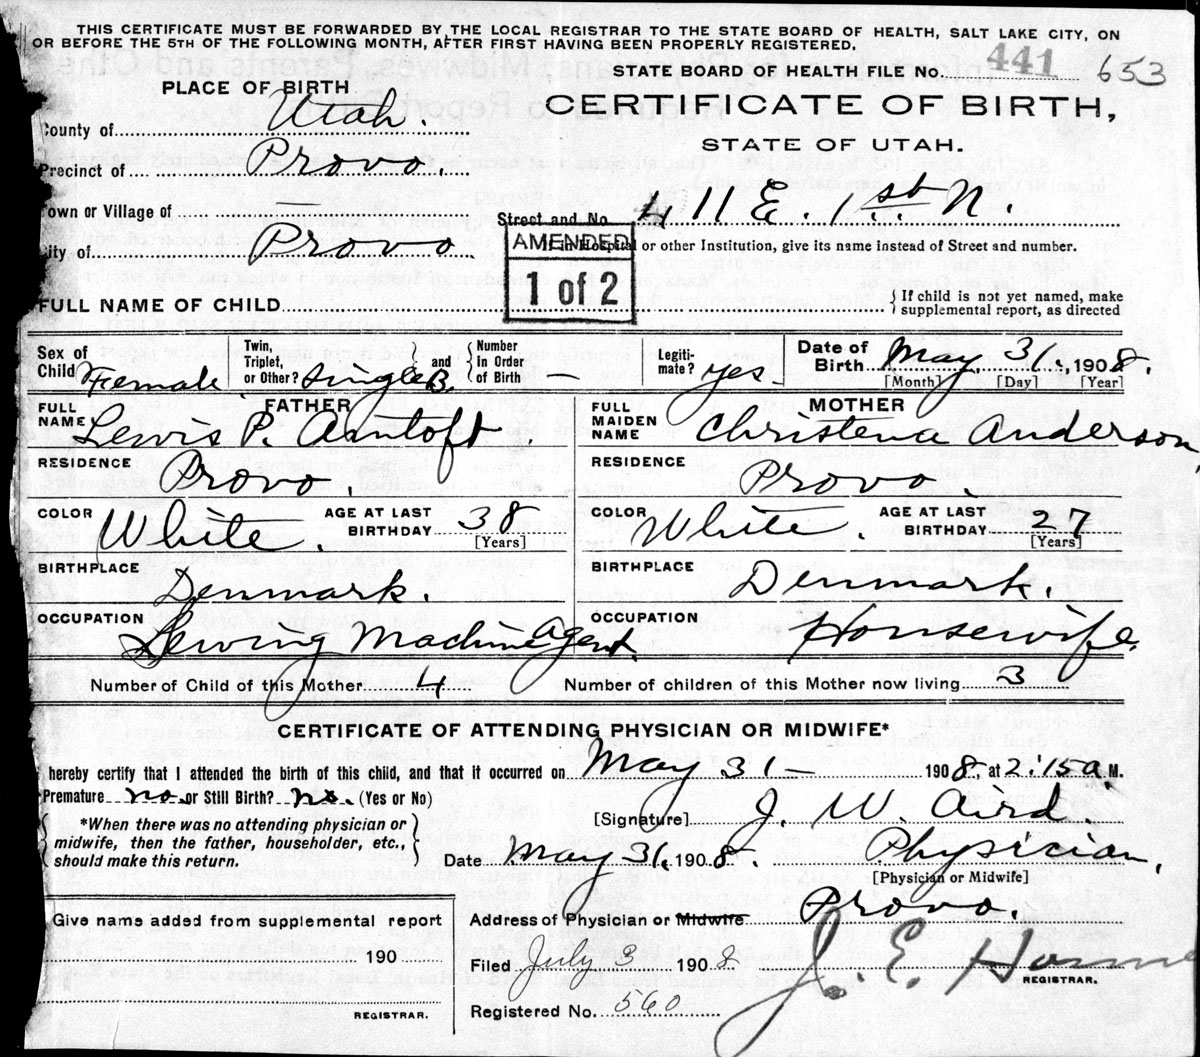 THIS CERTIFICATE MUST BE FORWARDED BY THE LOCAL REGISTRAR TO THE STATE BOARD OF HEALTH, SALT LAKE CITY, ON
OR BEFORE THE 5TH OF THE FOLLOWING MONTH, AFTER FIRST HAVING BEEN PROPERLY REGISTERED.
STATE BOARD OF HEALTH FILE No. 441 653
PLACE OF BIRTH
CERTIFICATE OF BIRTH,
County of Utah.
STATE OF UTAH.
Precinct of Provo.
Town or Village of
Street and No. 411 E. 1st N.
City of Provo
If in Hospital or other Institution, give its name instead of Street and number.
AMENDED
1 of 2
FULL NAME OF CHILD
If child is not yet named, make
supplemental report, as directed
Sex of Child Female Twin, Triplet, or Other? Single B. and Number In Order of Birth — Legiti-mate? yes Date of Birth May 31, 1908.
[Month] [Day] [Year]
FATHER MOTHER
FULL NAME Lewis P. Aantoft. FULL MAIDEN NAME Christena Anderson
RESIDENCE Provo. RESIDENCE Provo.
COLOR White. AGE AT LAST BIRTHDAY 38 [Years] COLOR White. AGE AT LAST BIRTHDAY 27 [Years]
BIRTHPLACE Denmark. BIRTHPLACE Denmark.
OCCUPATION Sewing Machine Agent. OCCUPATION Housewife.
Number of Child of this Mother 4 Number of children of this Mother now living 3
CERTIFICATE OF ATTENDING PHYSICIAN OR MIDWIFE*
hereby certify that I attended the birth of this child, and that it occurred on May 31 — 1908, at 2:15 a.M.
Premature no. or Still Birth? no. (Yes or No)
[Signature] J. W. Aird.
*When there was no attending physician or
midwife, then the father, householder, etc.,
should make this return.
Date May 31, 1908. Physician,
[Physician or Midwife]
Give name added from supplemental report
190
REGISTRAR.
Address of Physician or Midwife Provo.
Filed July 3 1908 J. E. Horne
REGISTRAR.
Registered No. 560